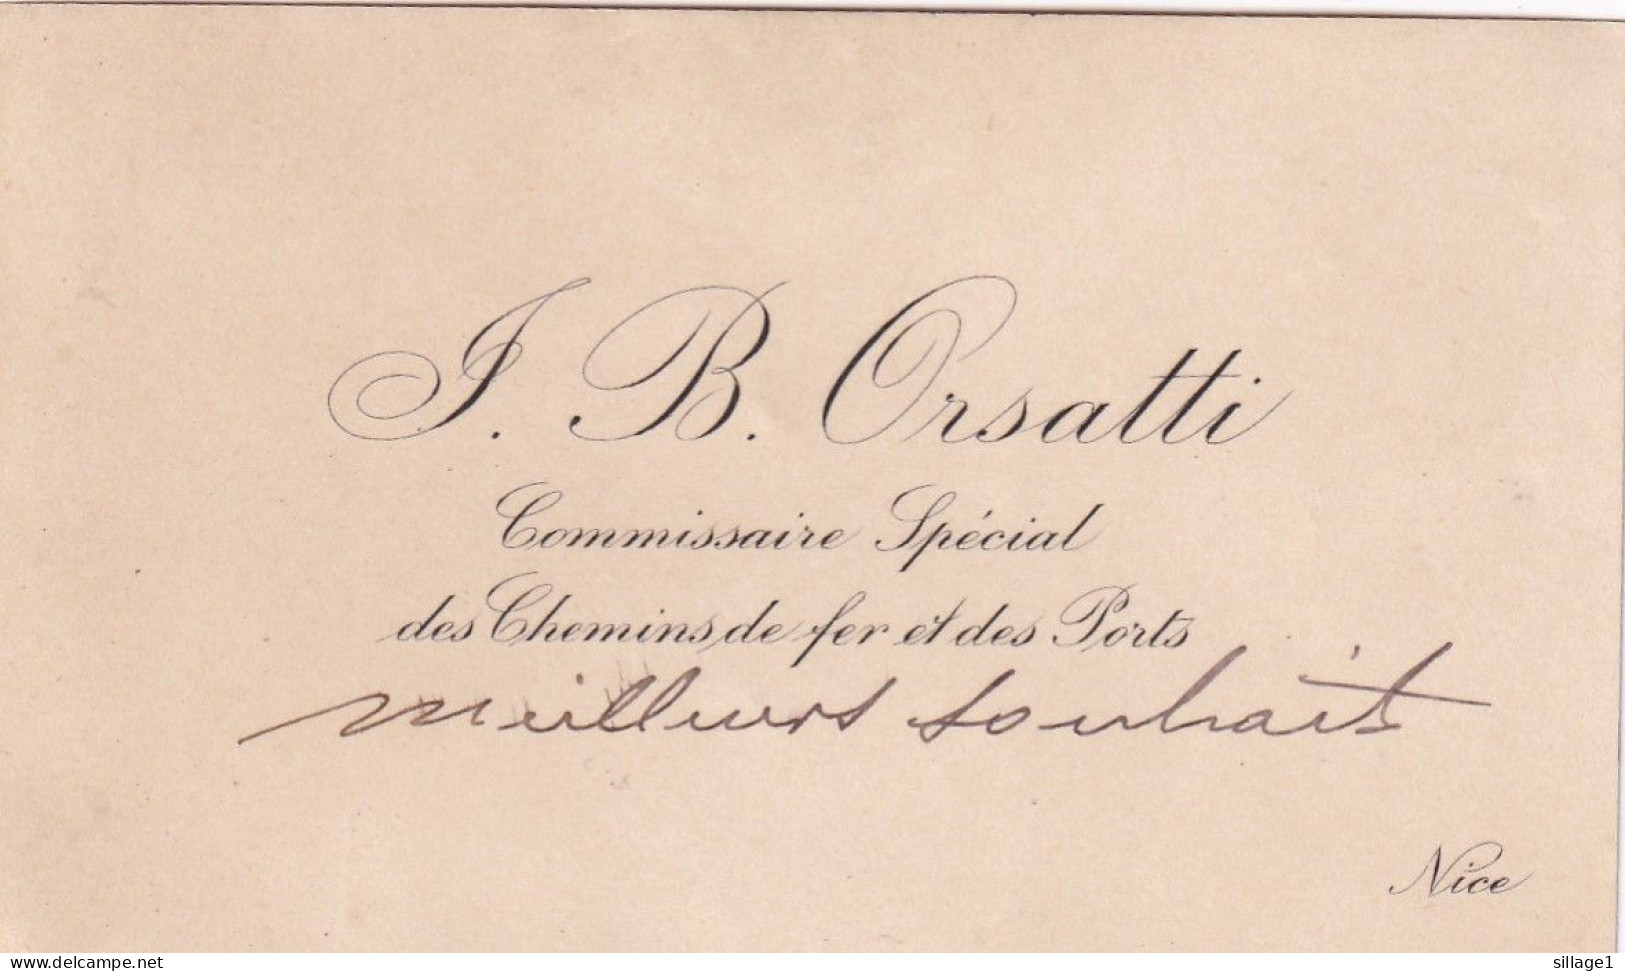 J. B. Orsatti
Commissaire Spécial
des Chemins de fer et des Ports
meilleurs souhaits
Nice
www.delcampe.net
sillage1